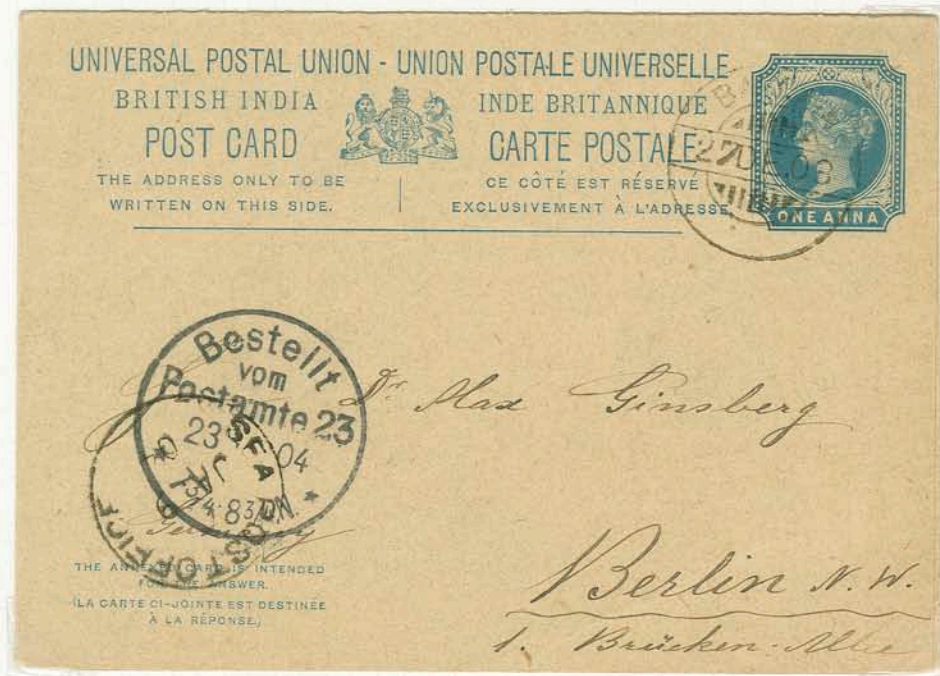 UNIVERSAL POSTAL UNION - UNION POSTALE UNIVERSELLE
BRITISH INDIA
POST CARD
THE ADDRESS ONLY TO BE
WRITTEN ON THIS SIDE.
INDE BRITANNIQUE
CARTE POSTALE
CE CÔTÉ EST RÉSERVÉ
EXCLUSIVEMENT À L'ADRESSE
ONE ANNA
Bestellt
vom
Postamte 23
23 04
SEA POST OFFICE
Dr Max Ginsberg
Germany
Berlin N.W.
1. Brücken-Allee
THE ANNEXED CARD IS INTENDED
FOR THE ANSWER.
(LA CARTE CI-JOINTE EST DESTINÉE
À LA RÉPONSE.)